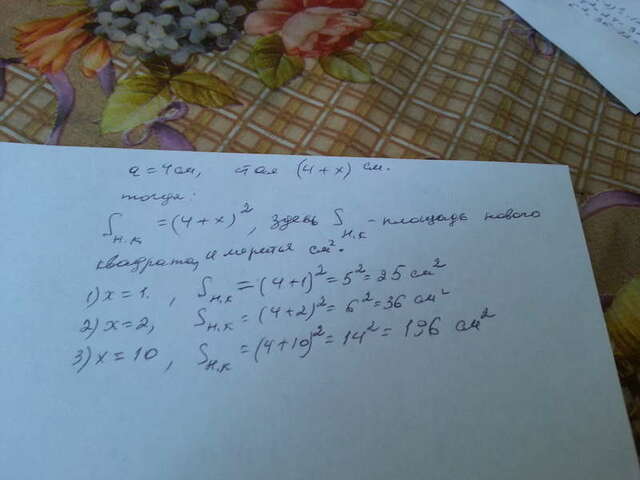 a = 4 см, стал (4 + x) см.
тогда:
S н.к = (4 + x)², здесь S н.к - площадь нового
квадрата, и мерется см².
1) x = 1. , S н.к = (4+1)² = 5² = 25 см²
2) x = 2, S н.к = (4+2)² = 6² = 36 см²
3) x = 10 , S н.к = (4+10)² = 14² = 196 см²